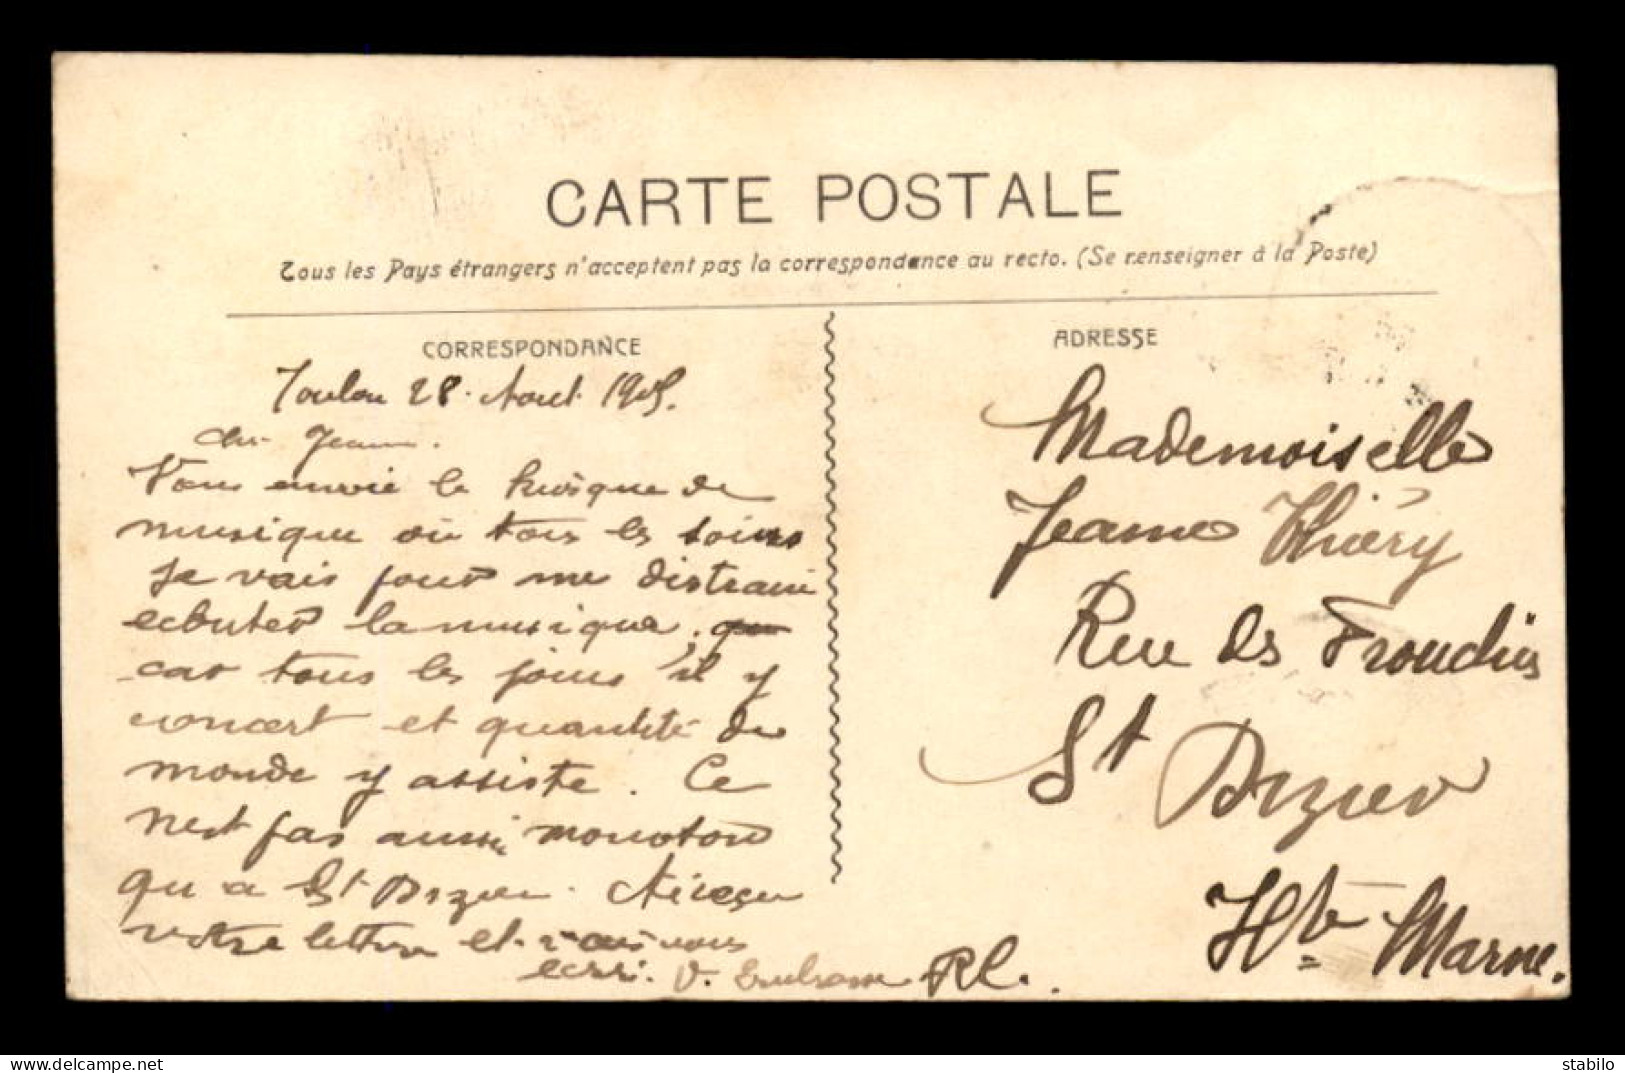 CARTE POSTALE
Tous les Pays étrangers n'acceptent pas la correspondance au recto. (Se renseigner à la Poste)
CORRESPONDANCE
Toulon 28 Aout 1905.
che Jeanne.
Vous envoie le kiosque de
musique où tous les soirs
je vais pour me distraire
ecouter la musique,
car tous les jours il y
concert et quantité de
monde y assiste. Ce
n'est pas aussi monotone
qu'a St Dizier. Ai reçu
votre lettre et vais vous
ecrire. V. Embrasse RC.
ADRESSE
Mademoiselle
Jeanne Thiéry
Rue des
St Dizier
Hte Marne.
stabilo